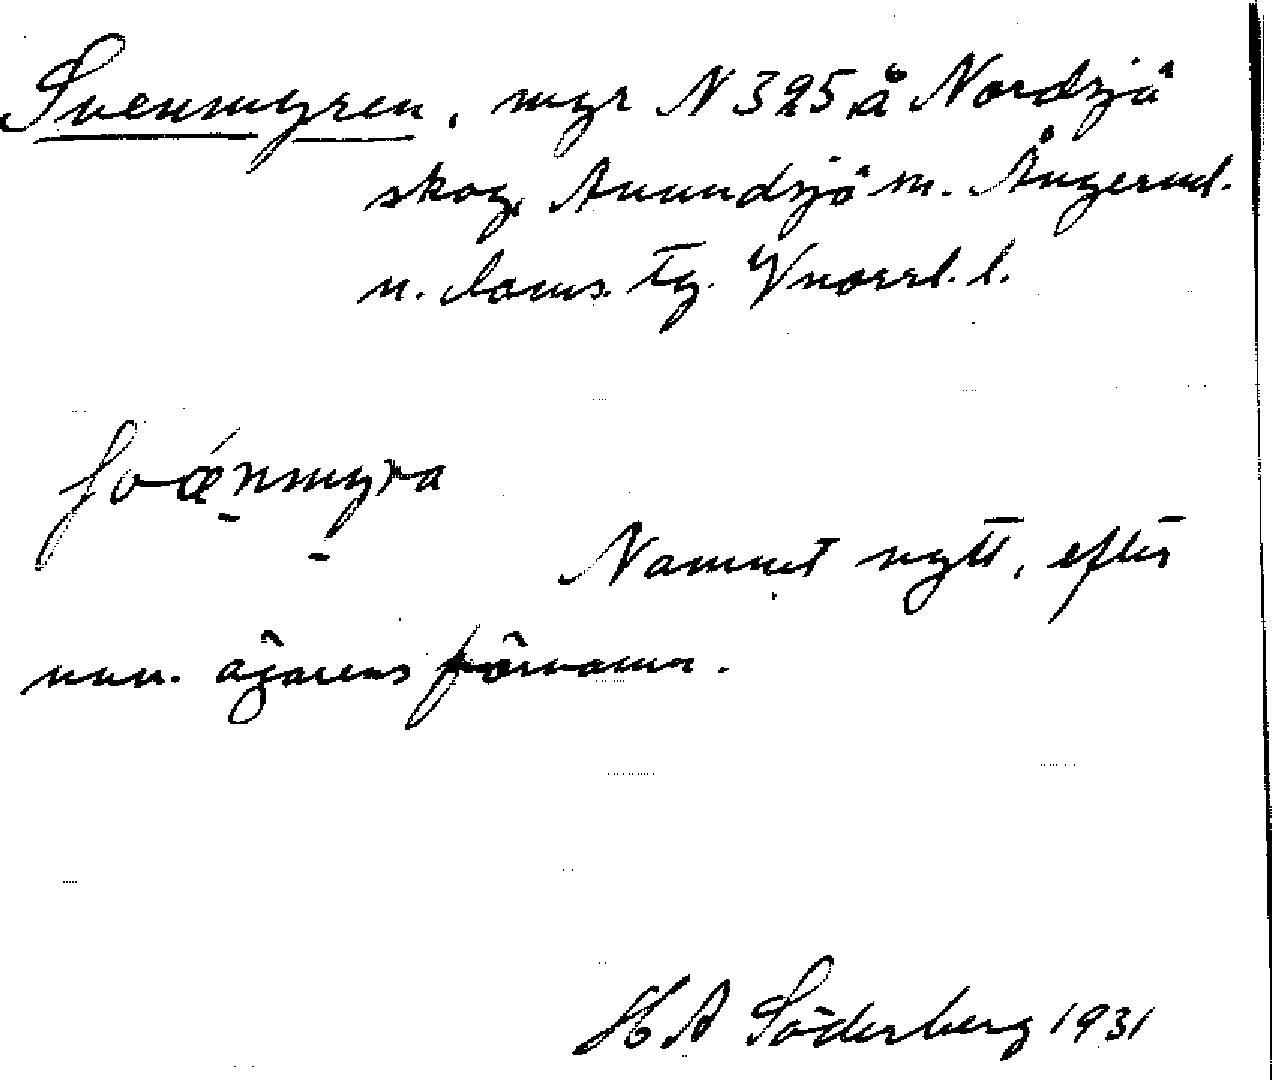 Svenmyren, myr N 325 å Nordsjö
skog, Anundsjö sn. Ångerml.
n. doms. tg. Vnorrl. l.
svænmyra
Namnet nytt, efter
nuv. ägarens förnamn.
H A Söderberg 1931